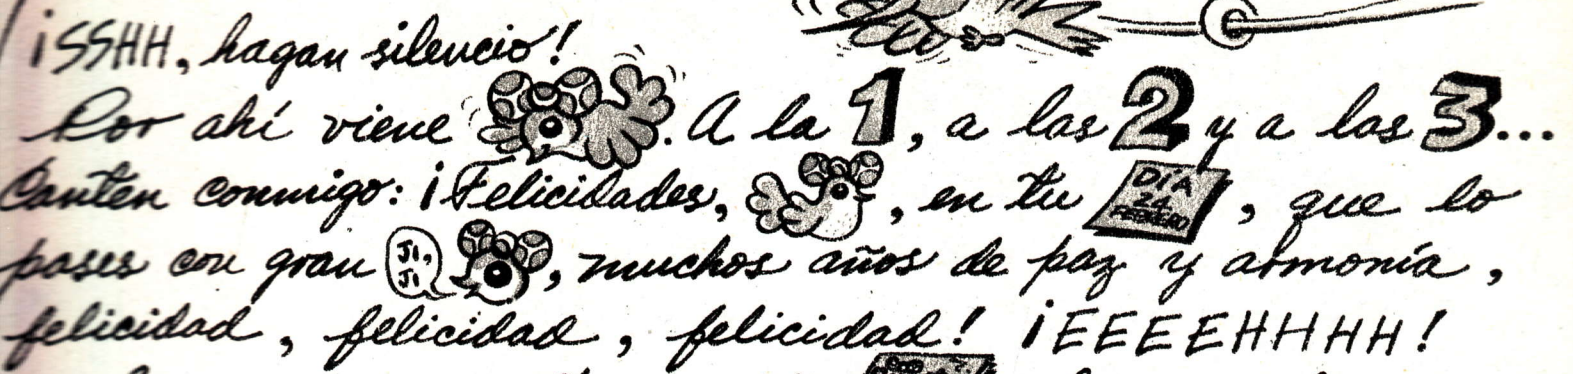 ¡SSHH, hagan silencio!
Por ahí viene . A la 1, a las 2 y a las 3...
Canten conmigo: ¡Felicidades, , en tu DÍA 24 FEBRERO, que lo
pases con gran JI, JI, , muchos años de paz y armonía,
felicidad, felicidad, felicidad! ¡EEEEHHHH!